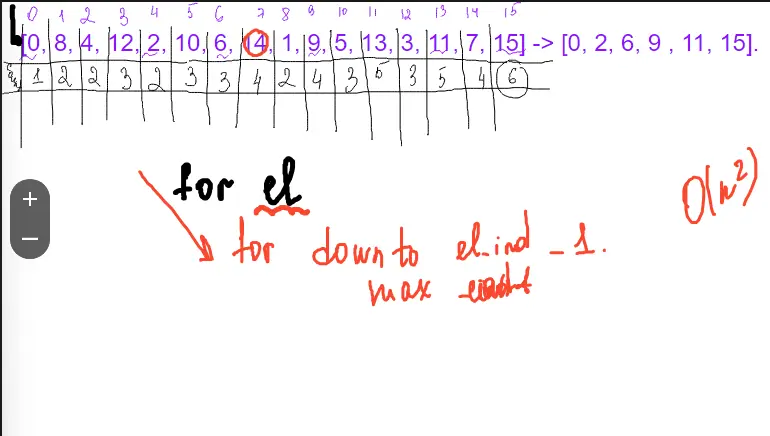 0 1 2 3 4 5 6 7 8 9 10 11 12 13 14 15
[0, 8, 4, 12, 2, 10, 6, 14, 1, 9, 5, 13, 3, 11, 7, 15] -> [0, 2, 6, 9 , 11, 15].
1 2 2 3 2 3 3 4 2 4 3 5 3 5 4 6
for el
O(n²)
for down to el-ind - 1.
max